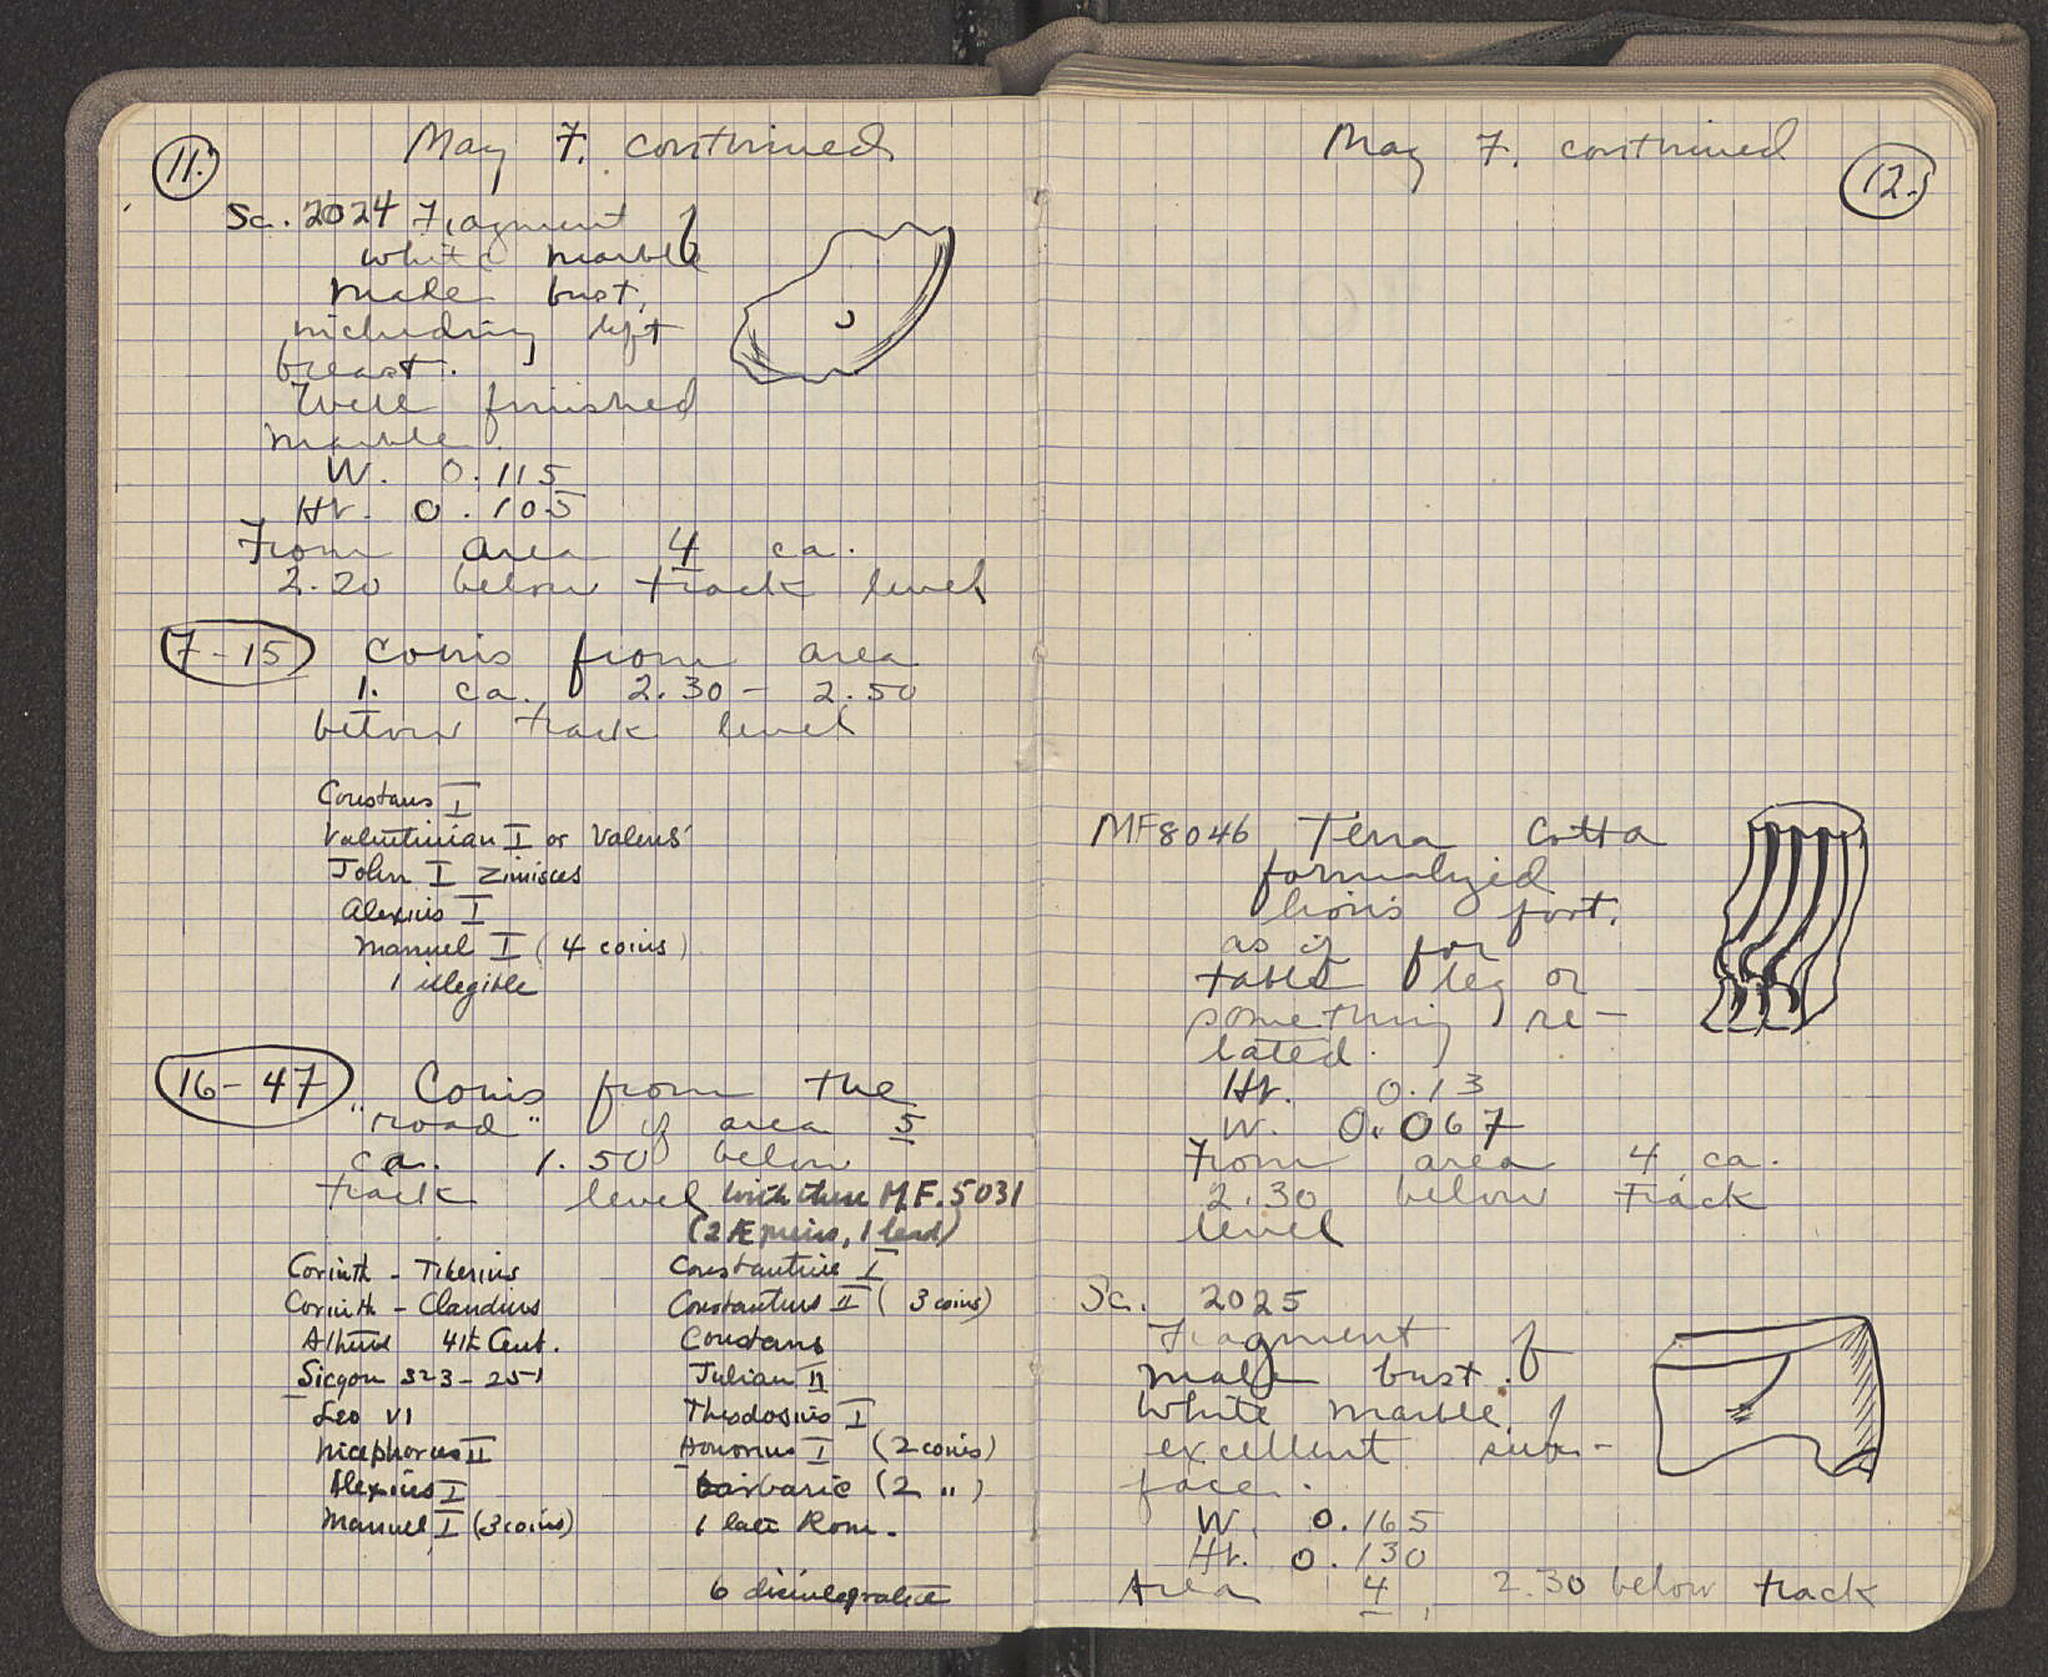 11.
May 7. continued
Sc. 2024 Fragment of
white marble
male bust,
including left
breast.
Well finished
marble.
W. 0.115
Ht. 0.105
From area 4 ca.
2.20 below track level
7-15 Coins from area
1. ca. 2.30 - 2.50
below track level
Constans I
Valentinian I or Valens
John I Zimisces
Alexius I
Manuel I (4 coins)
1 illegible
16-47 Coins from the
"road" of area 5
ca. 1.50 below
track level with these M.F. 5031
(2 Æ , 1 lead)
Corinth - Tiberius
Corinth - Claudius
Athens 4th Cent.
Sicyon 323-251
Leo VI
Nicephorus II
Alexius I
Manuel I (3 coins)
Constantine I
Constantius II (3 coins)
Constans
Julian II
Theodosius I
Honorius I (2 coins)
barbaric (2 ")
1 late Rom.
6 disintegrated
May 7. continued
12.
MF8046 Terra Cotta
formalized
lion's foot.
as if for
table leg or
something re-
lated.
Ht. 0.13
W. 0.067
From area 4 ca.
2.30 below track
level
Sc. 2025
Fragment of
male bust of
white marble, of
excellent sur-
face.
W. 0.165
Ht. 0.130
Area 4, 2.30 below track